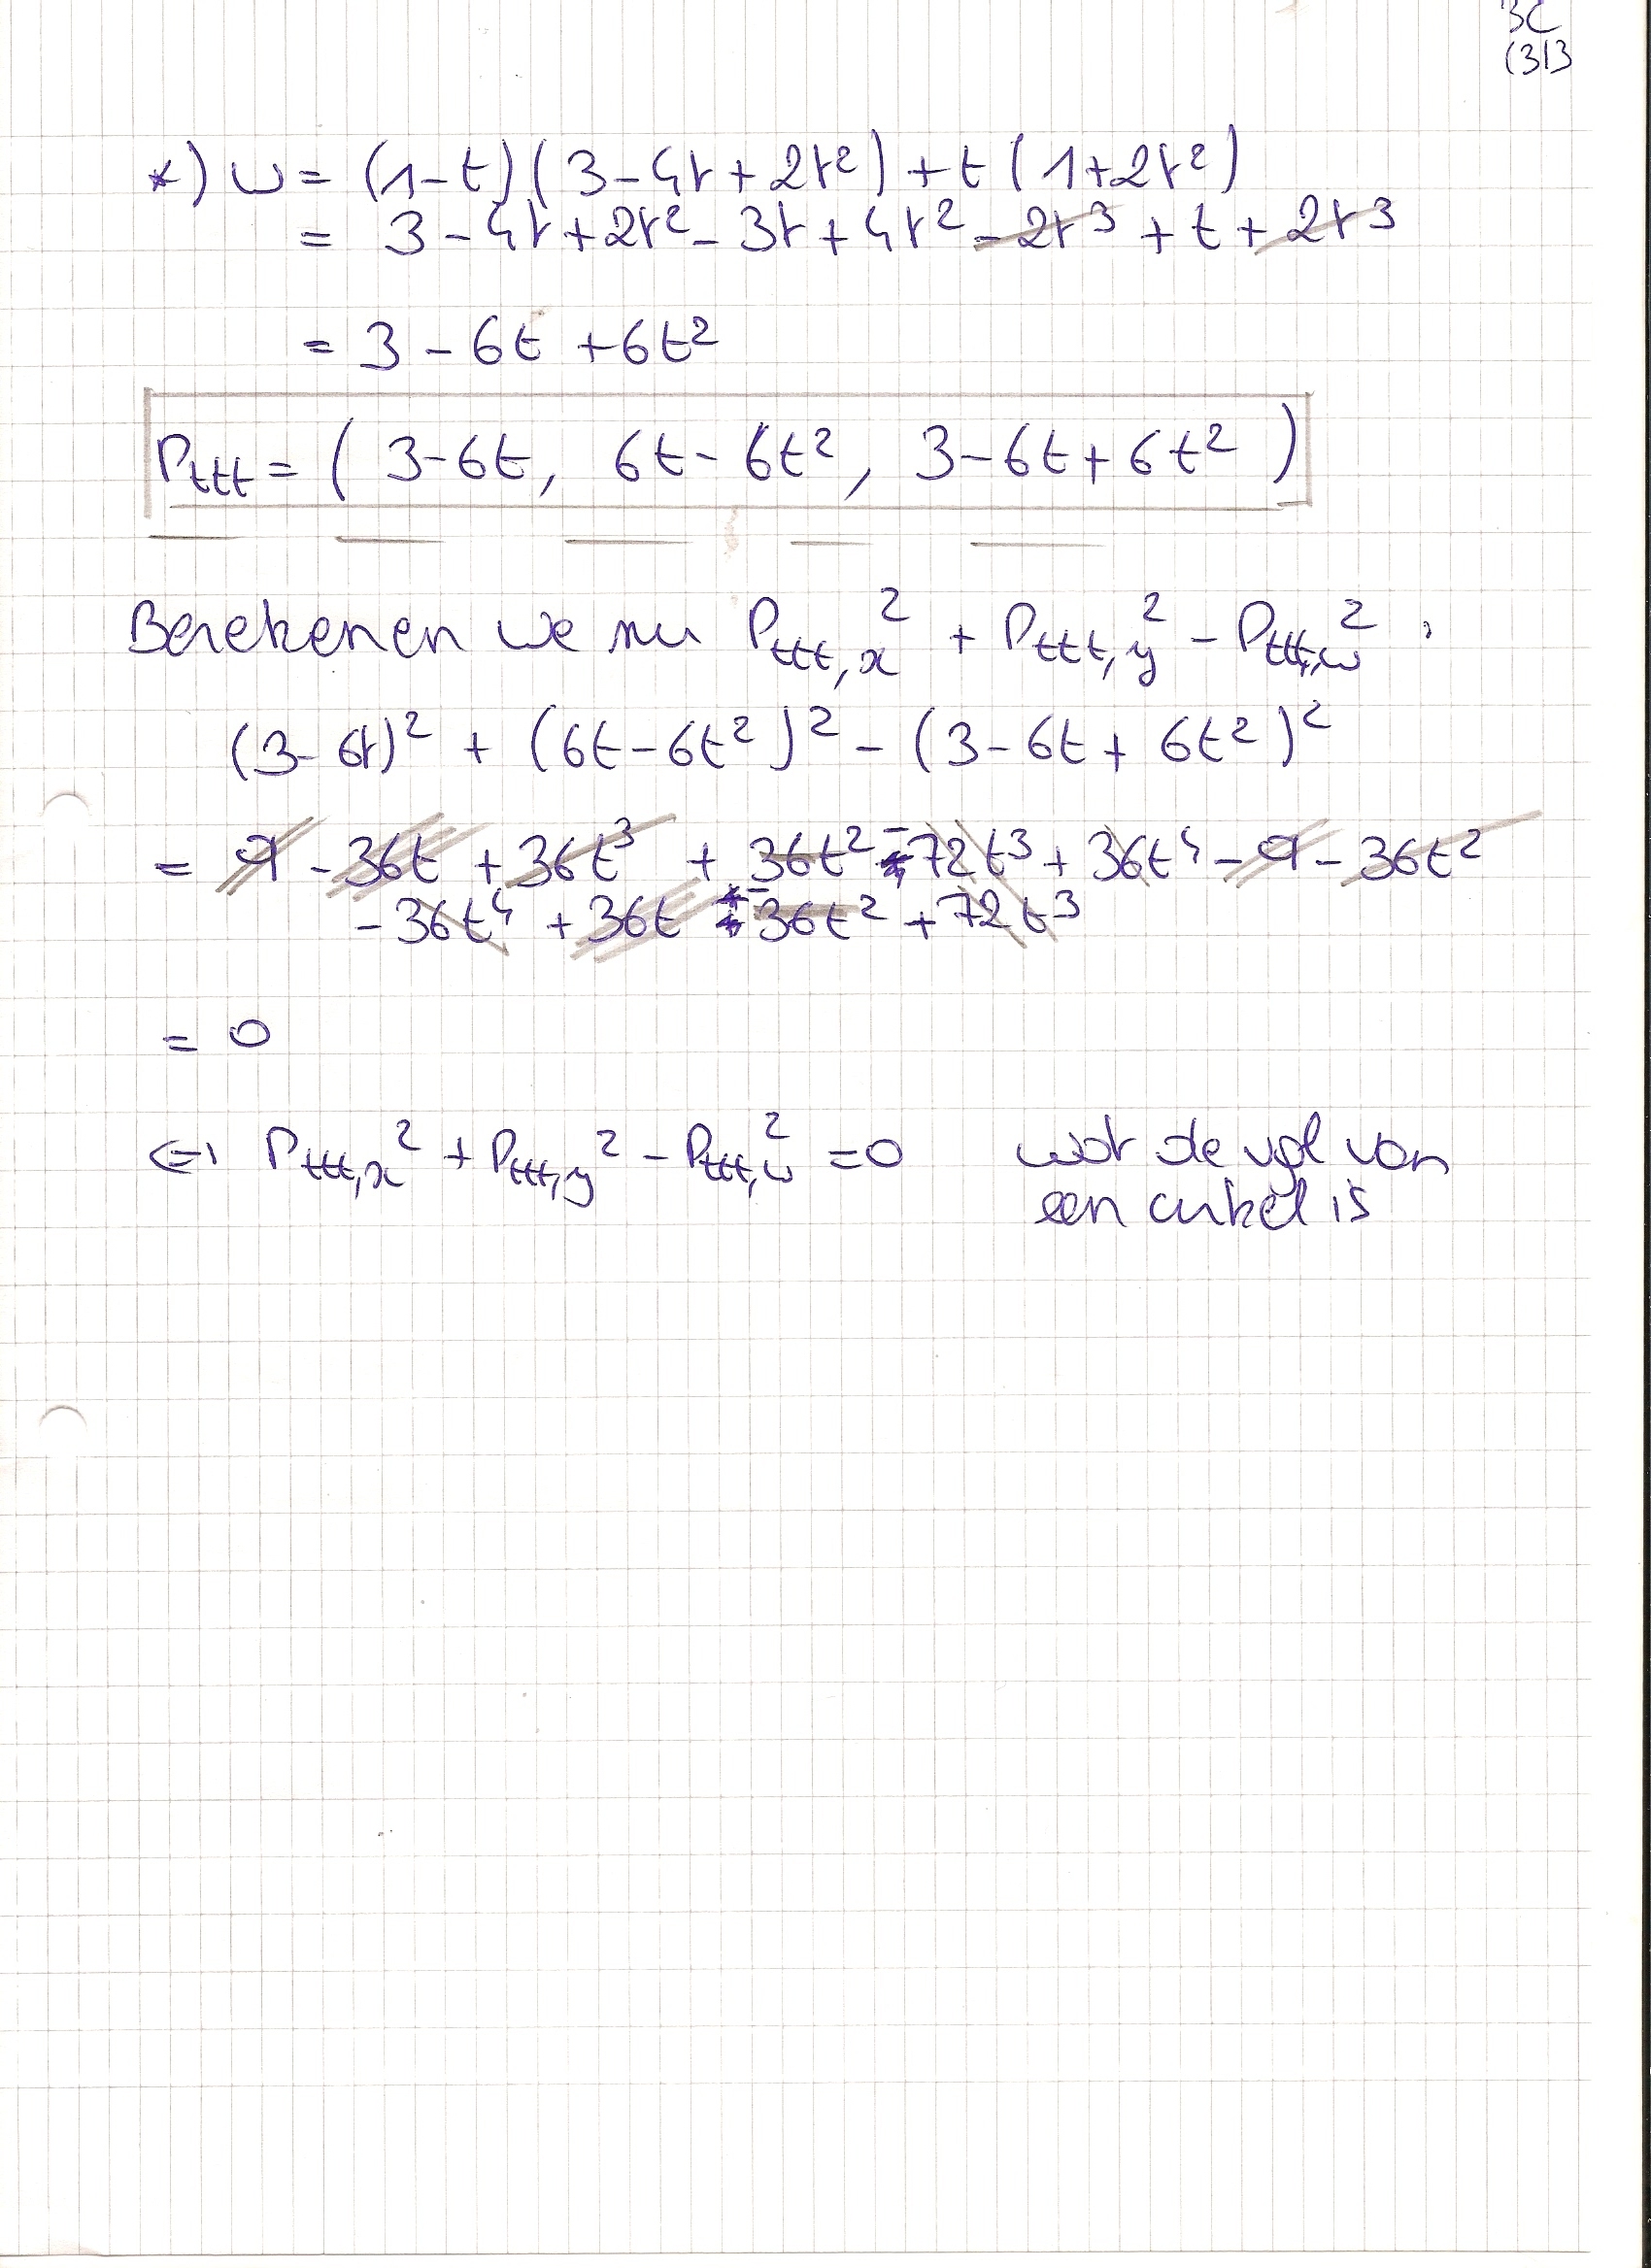 3C
(3)3
*) w = (1-t)(3-4t+2t²)+t(1+2t²)
= 3-4t+2t²-3t+4t²-2t³+t+2t³
= 3-6t+6t²
P_ttt = ( 3-6t, 6t-6t², 3-6t+6t² )
Berekenen we nu P_ttt,x² + P_ttt,y² - P_ttt,w² :
(3-6t)² + (6t-6t²)² - (3-6t+6t²)²
= 9-36t+36t³ + 36t²-72t³+36t⁴-9-36t²
-36t⁴+36t-36t²+72t³
= 0
⇔ P_ttt,x² + P_ttt,y² - P_ttt,w² = 0 wat de vgl van
een cirkel is